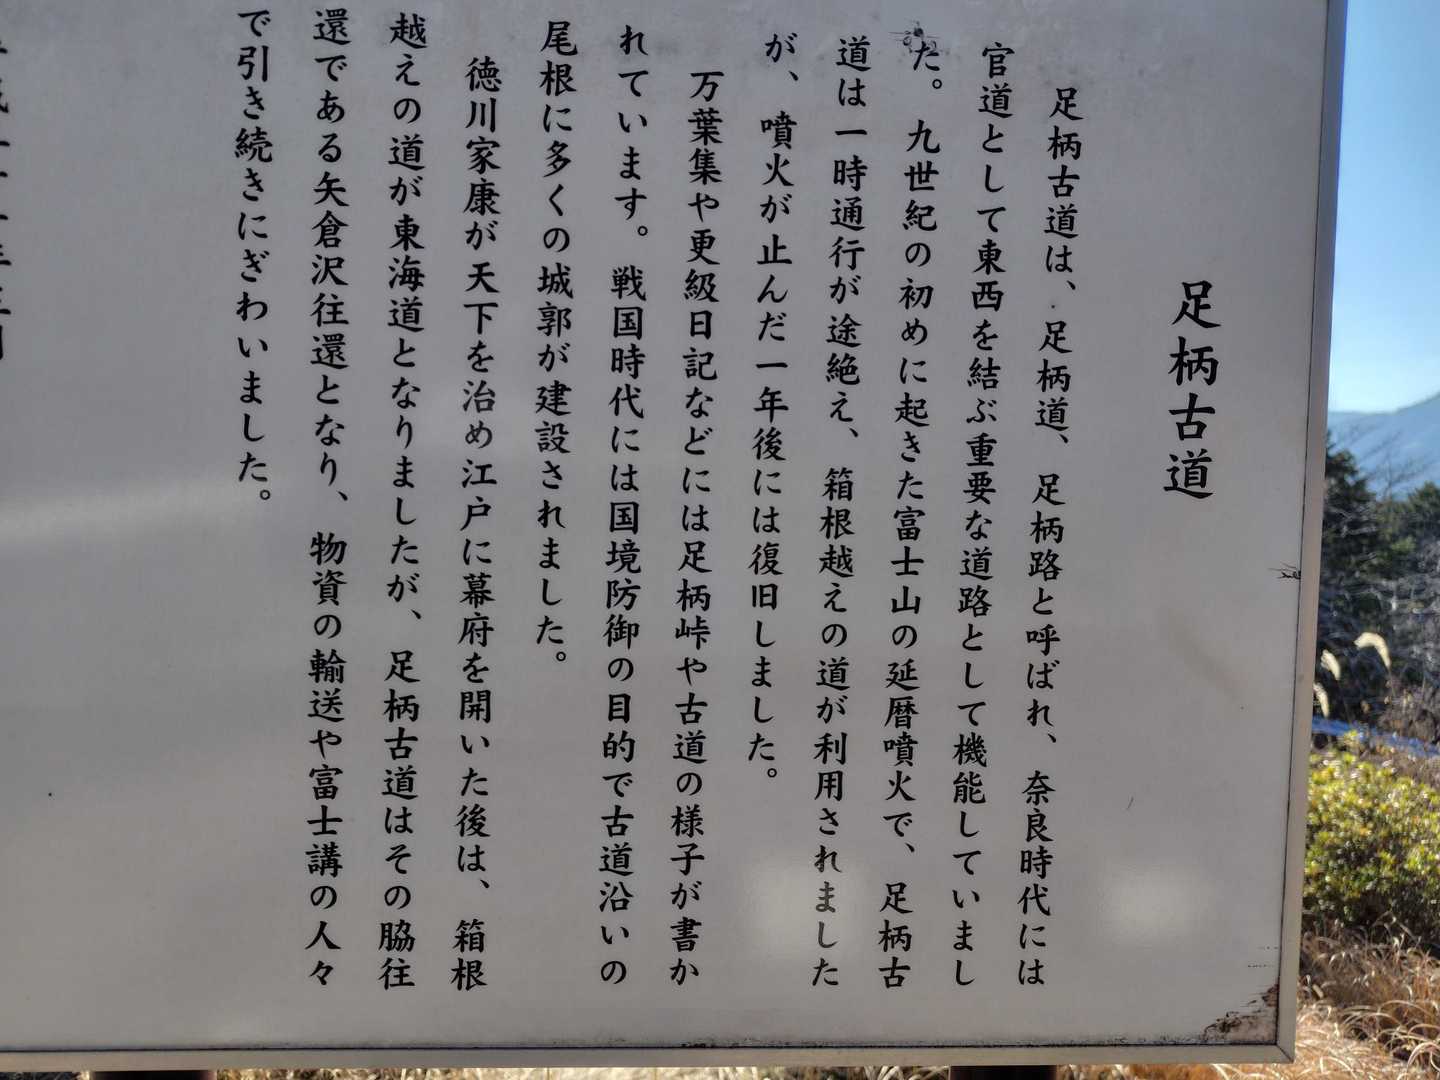 足柄古道
足柄古道は、足柄道、足柄路と呼ばれ、奈良時代には
官道として東西を結ぶ重要な道路として機能していまし
た。九世紀の初めに起きた富士山の延暦噴火で、足柄古
道は一時通行が途絶え、箱根越えの道が利用されました
が、噴火が止んだ一年後には復旧しました。
万葉集や更級日記などには足柄峠や古道の様子が書か
れています。戦国時代には国境防御の目的で古道沿いの
尾根に多くの城郭が建設されました。
徳川家康が天下を治め江戸に幕府を開いた後は、箱根
越えの道が東海道となりましたが、足柄古道はその脇往
還である矢倉沢往還となり、物資の輸送や富士講の人々
で引き続きにぎわいました。